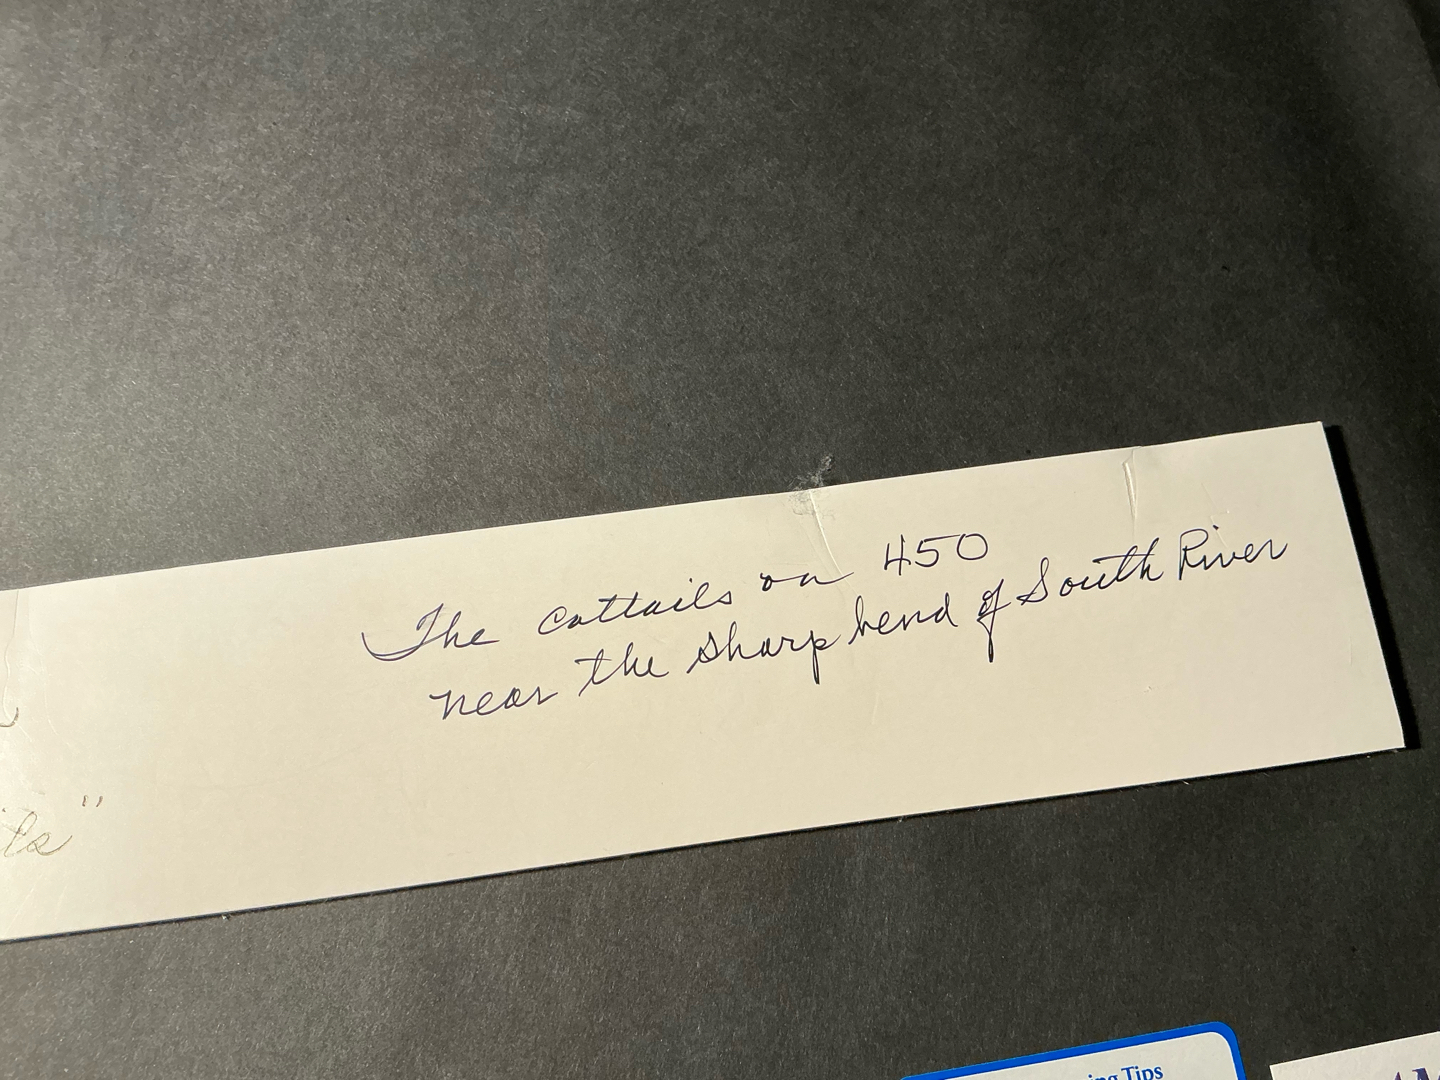 The cattails on 450
near the sharp bend of South River
ls"
ng Tips